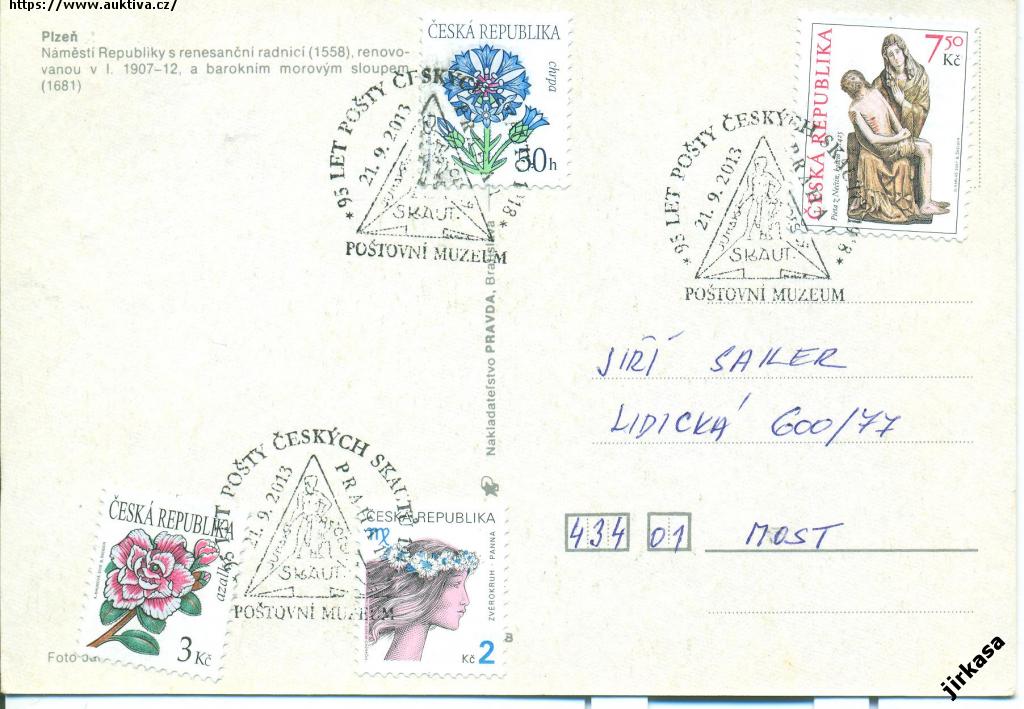 https://www.auktiva.cz/
Plzeň
Náměstí Republiky s renesanční radnicí (1558), renovo-
vanou v l. 1907–12, a barokním morovým sloupem
(1681)
ČESKÁ REPUBLIKA
chrpa
50h
* 95 LET POŠTY ČESKÝCH
1918 *
21. 9. 2013
SKAUT
POŠTOVNÍ MUZEUM
ČESKÁ REPUBLIKA
7,50
Kč
* 95 LET POŠTY ČESKÝCH SKAUTŮ 1918 *
21. 9. 2013
PRAHA
SKAUT
POŠTOVNÍ MUZEUM
Nakladateľstvo PRAVDA, Bratislava
JIŘÍ SAILER
LIDICKÁ 600/77
434 01 MOST
LET POŠTY ČESKÝCH SKAUTŮ
21. 9. 2013
PRAHA
SKAUT
POŠTOVNÍ MUZEUM
ČESKÁ REPUBLIKA
3 Kč
ČESKÁ REPUBLIKA
ZVĚROKRUH - PANNA
Kč 2
B
Foto
jirkasa